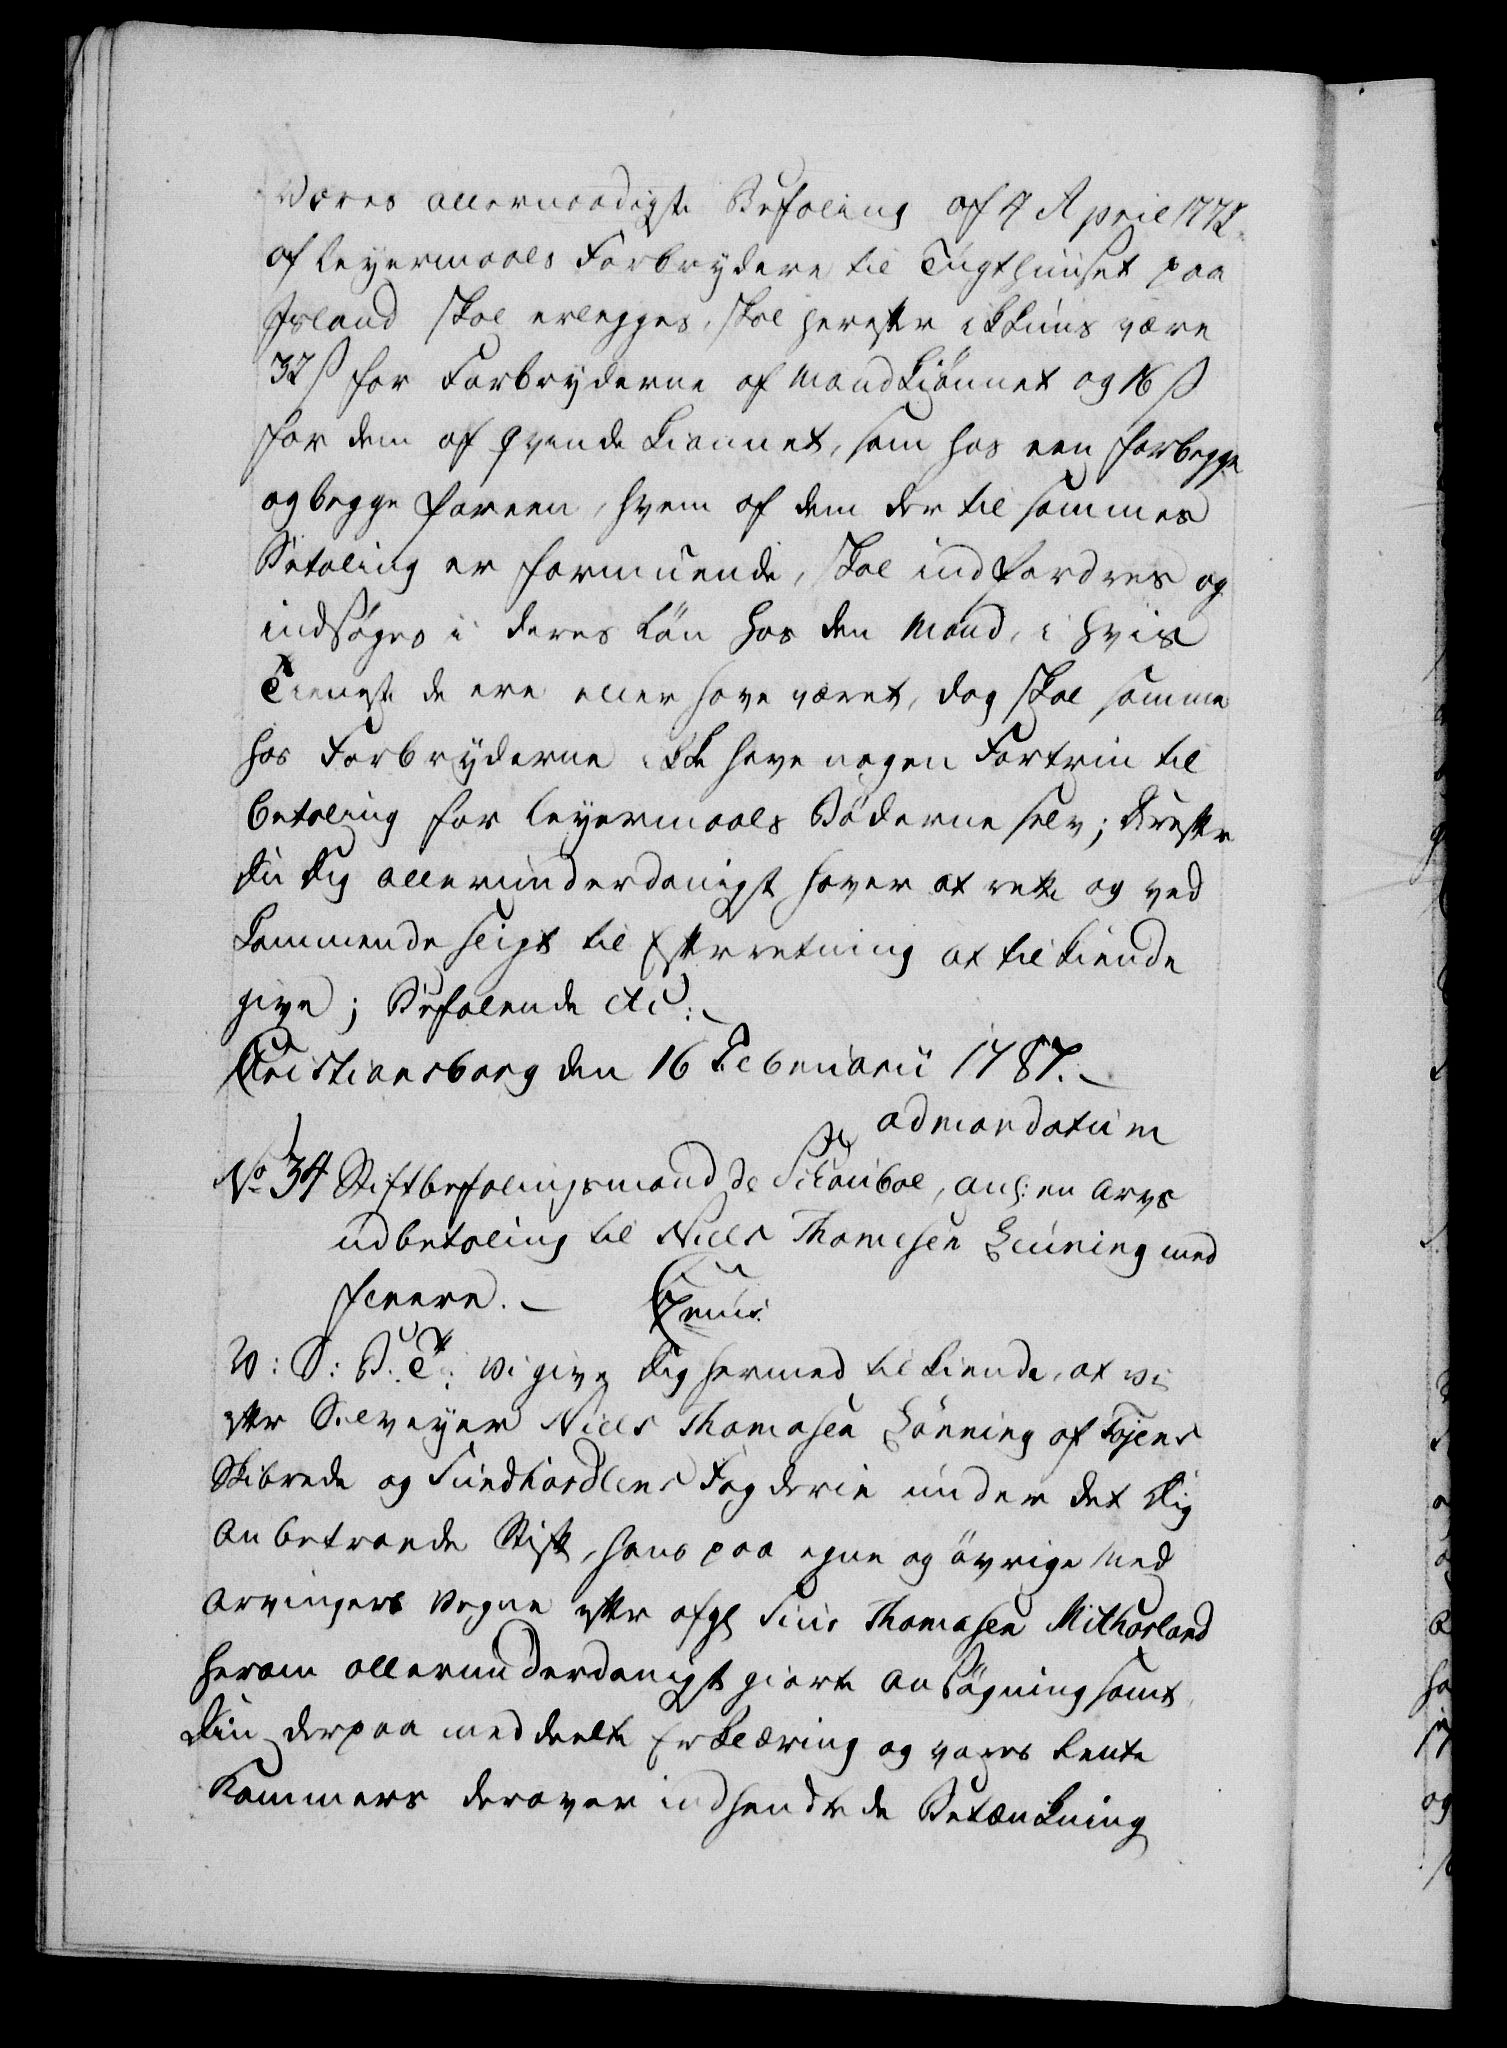 Vores allernaadigste Befaling af 4 April 1772
af Leyermaals Forbrydere til Tugthuuset paa
Island skal erlegges, skal herefter ikkuns være
32 ß for Forbryderne af Mandkiønnet og 16 ß
for dem af Qvinde Kiønnet, som hos een for begge
og begge for een, hvem af dem der til sammes
Betaling er formuende, skal indfordres og
indsøges i deres Løn hos den Mand, i hvis
Tieneste de ere eller have været, dog skal samme
hos Forbryderne ikke have nogen Fortrin til
betaling for Leyermaals Bøderne selv; Derefter
Du Dig allerunderdanigst haver at rette og ved
kommende sligt til Efterretning at tilkiende
give; Befalende etc:
Christiansborg den 16 Februarii 1787.
ad mandatum
No 34 Stiftbefalingsmand de Schouboe, anl: en Arvs
udbetaling til Niels Thomesen Lønning med
fleere.
V: S: B: T: Vi give Dig hermed tilkiende, at vi
efter Selveyer Niels Thomasen Lønning af Føjens
Skibrede og Sundhordlens Fogderie under det Dig
anbetroede Stift, hans paa egne og øvrige Med
arvingers Vegne efter afgl Siur Thomasen Mithasland
herom allerunderdanigst giorte Ansøgning samt
Din derpaa meddeelte Erklæring og vores Rente
Kammers derover indsendte Betænkning